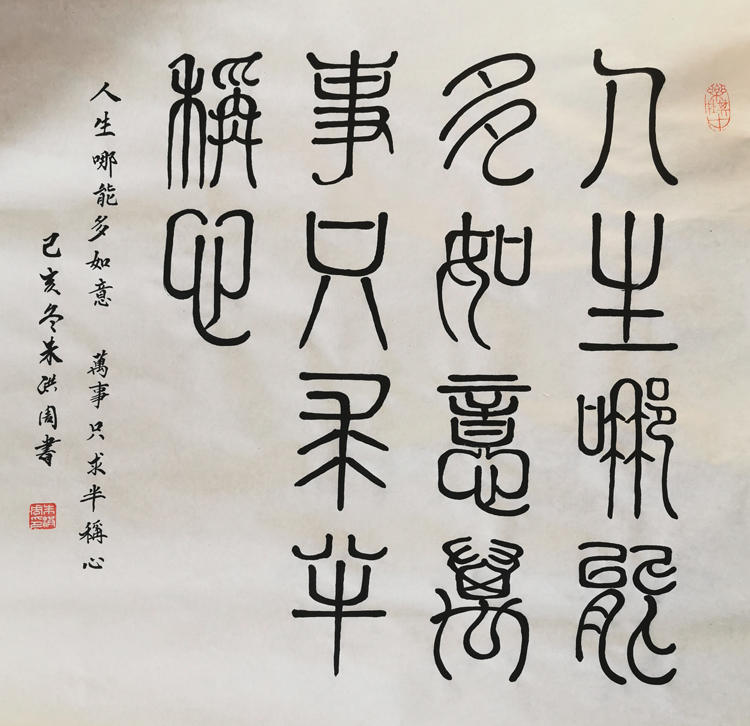 人生哪能
多如意萬
事只求半
稱心
人生哪能多如意 萬事只求半稱心
己亥冬朱洪周書